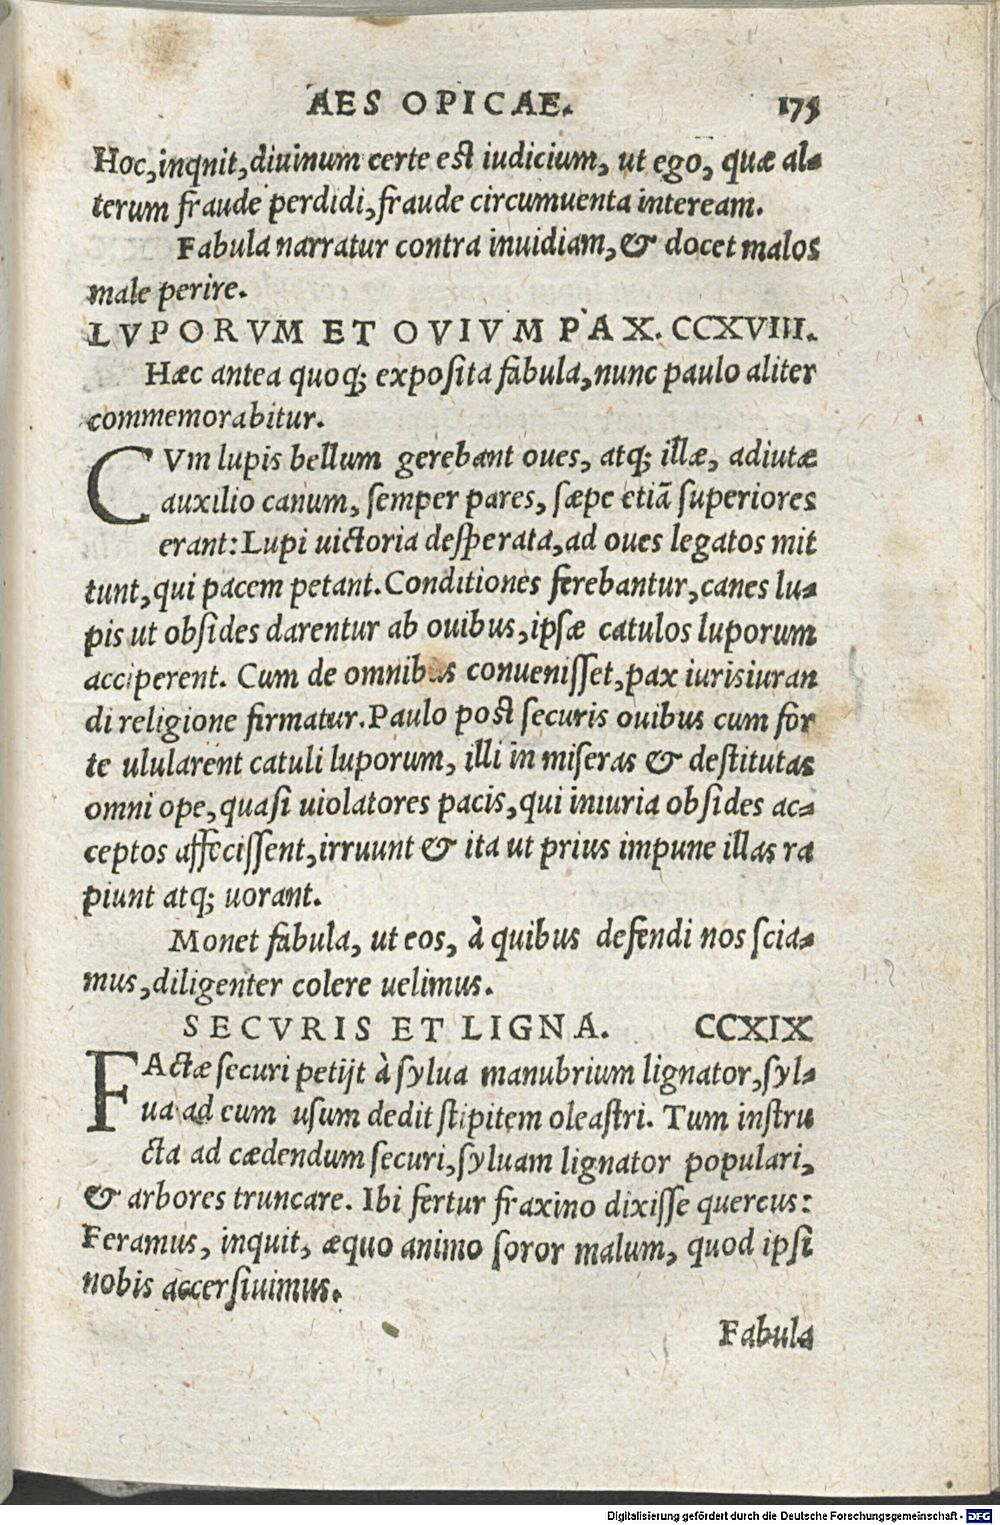 AES OPICAE. 175
Hoc, inqnit, diuinum certe est iudicium, ut ego, quæ al-
terum fraude perdidi, fraude circumuenta inteream.
Fabula narratur contra inuidiam, & docet malos
male perire.
LVPORVM ET OVIVM PAX. CCXVIII.
Hæc antea quoq; exposita fabula, nunc paulo aliter
commemorabitur.
CVm lupis bellum gerebant oues, atq; illæ, adiutæ
auxilio canum, semper pares, sæpe etiã superiores
erant: Lupi uictoria desperata, ad oues legatos mit
tunt, qui pacem petant. Conditiones ferebantur, canes lu-
pis ut obsides darentur ab ouibus, ipsæ catulos luporum
acciperent. Cum de omnibus conuenisset, pax iurisiuran
di religione firmatur. Paulo post securis ouibus cum for
te ulularent catuli luporum, illi in miseras & destitutas
omni ope, quasi uiolatores pacis, qui iniuria obsides ac-
ceptos affecissent, irruunt & ita ut prius impune illas ra
piunt atq; uorant.
Monet fabula, ut eos, à quibus defendi nos scia-
mus, diligenter colere uelimus.
SECVRIS ET LIGNA. CCXIX
FActæ securi petijt à sylua manubrium lignator, syl-
ua ad eum usum dedit stipitem oleastri. Tum instru
cta ad cædendum securi, syluam lignator populari,
& arbores truncare. Ibi fertur fraxino dixisse quercus:
Feramus, inquit, æquo animo soror malum, quod ipsi
nobis accersiuimus.
Fabula
Digitalisierung gefördert durch die Deutsche Forschungsgemeinschaft - DFG